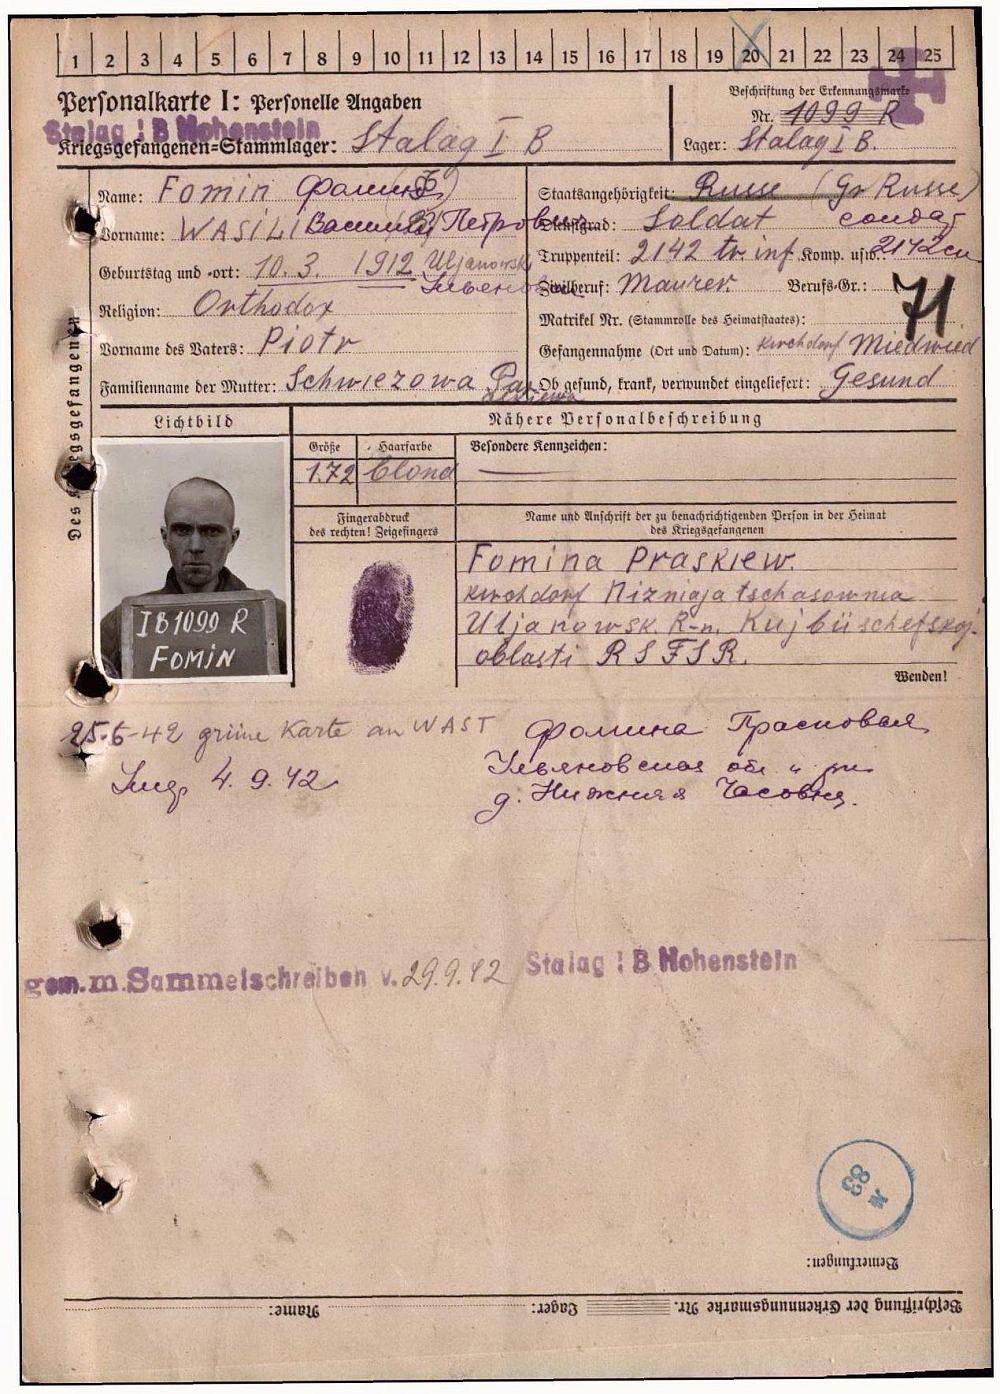 1 2 3 4 5 6 7 8 9 10 11 12 13 14 15 16 17 18 19 20 21 22 23 24 25
Personalkarte I: Personelle Angaben
Beschriftung der Erkennungsmarke
Stalag I B Hohenstein
Nr. 1099 R
Kriegsgefangenen-Stammlager: Stalag I B
Lager: Stalag I B.
Des Kriegsgefangenen
Name: Fomin Фомин
Vorname: WASILI Василий Петрович
Geburtstag und -ort: 10. 3. 1912 Uljanowsk
Ульяновск
Religion: Orthodox
Vorname des Vaters: Piotr
Familienname der Mutter: Schwiezowa
Staatsangehörigkeit: Russe (Gr Russe)
Dienstgrad: Soldat солдат
Truppenteil: 2142 tr. inf. Komp. usw.: 2142 сп
Zivilberuf: Maurer Berufs-Gr.:
71
Matrikel Nr. (Stammrolle des Heimatstaates):
Gefangennahme (Ort und Datum): Kirchdorf Miedwied
Ob gesund, krank, verwundet eingeliefert: Gesund
Lichtbild
Nähere Personalbeschreibung
Größe Haarfarbe Besondere Kennzeichen:
1.72 blond
Fingerabdruck
des rechten! Zeigefingers
Name und Anschrift der zu benachrichtigenden Person in der Heimat
des Kriegsgefangenen
IB1099 R
FOMIN
Fomina Praskiew.
Kirchdorf Nizniaja tschasownia
Uljanowsk. R-n. Kujbüschefskoj.
oblasti R S F S R.
Wenden!
25-6-42 grüne Karte an WAST
4. 9. 42
Фомина Прасковья
Ульяновская обл и рн
д. Нижняя Часовня.
gem. m. Sammelschreiben v. 29.9.42 Stalag I B Hohenstein
M
83
Bemerkungen:
Beschriftung der Erkennungsmarke Nr. Lager: Name: